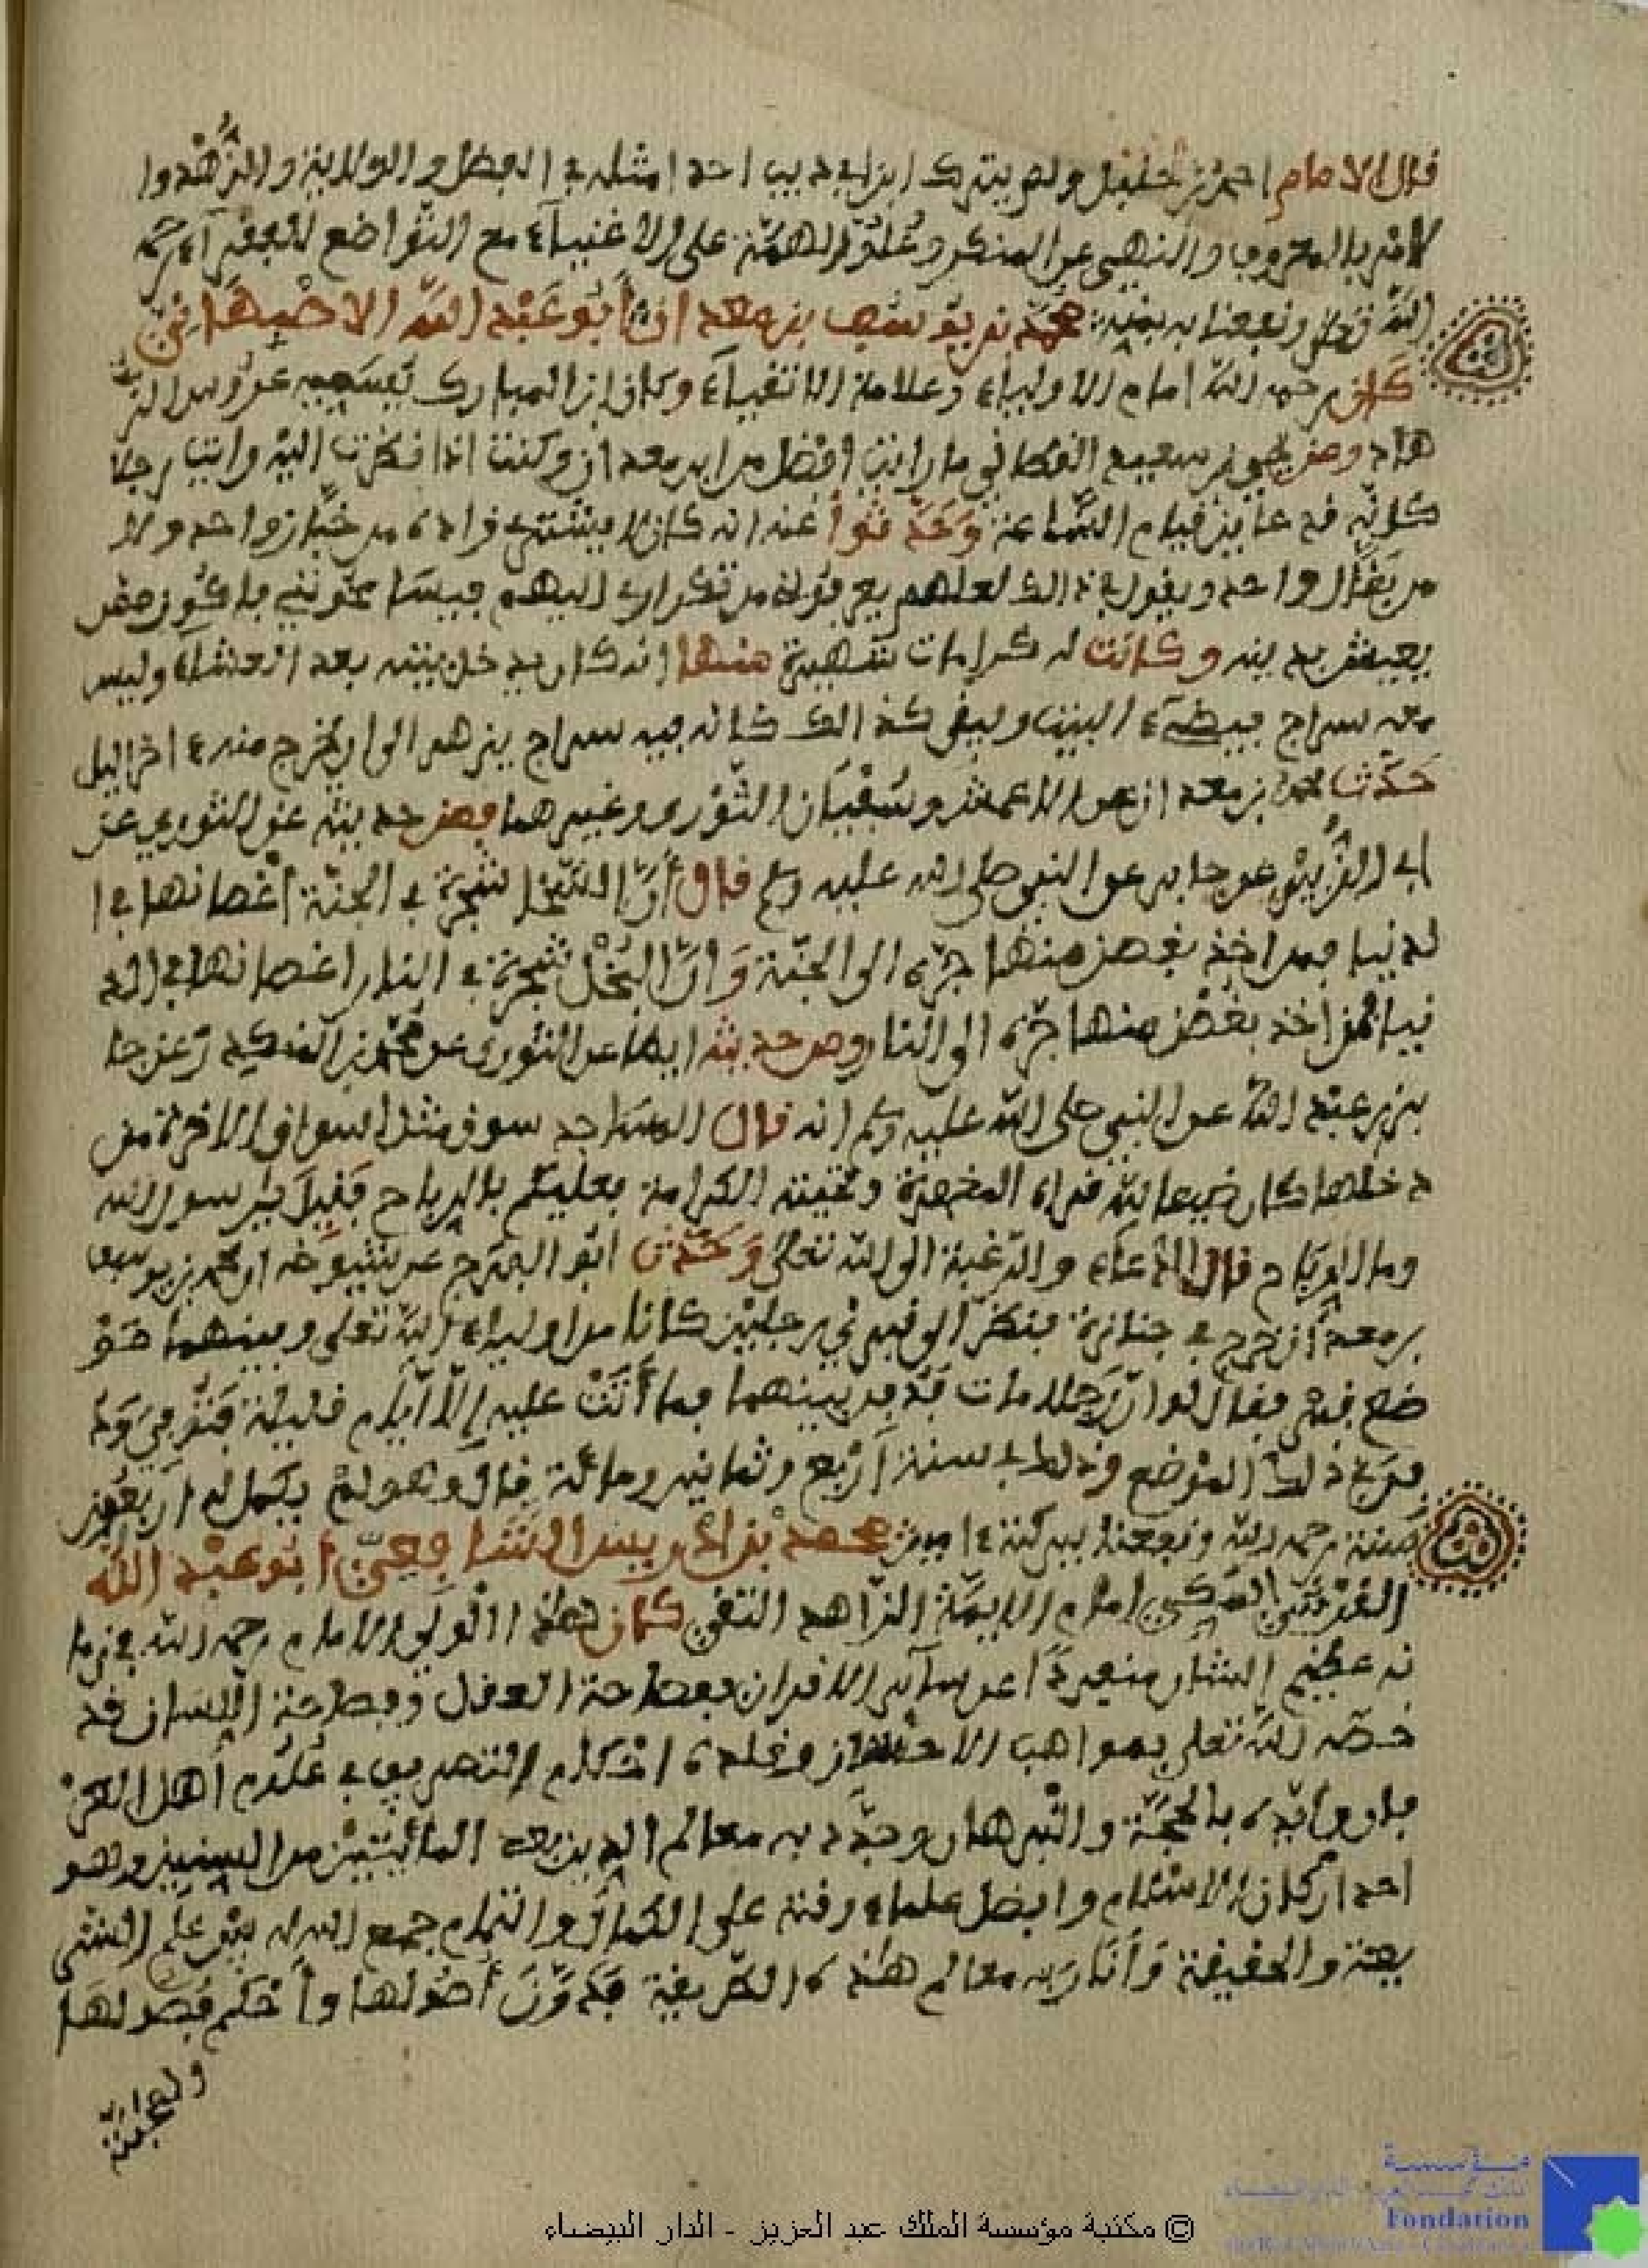 قال الامام احمد بن حنبل ولم يترك ابن ابي ديب احدا مثله في الفضل والولاية والزهد وا
لامر بالمعروف والنهي عن المنكر وعلو الهمة على الاغنياء مع التواضع للفقراء رحمه
الله تعلى ونفعنا به بمنه محمد بن يوسف بن معدان أبو عبد الله الاصبهاني
كان رحمه الله امام الاولياء وعلامة الاتقياء وكان ابن المبارك يسميه عروس الز
هاد وعن يحيى بن سعيد القطاني ما رايت افضل من ابن معدان وكنت اذا نظرت اليه رايت رجلا
كانه قد عاين قيام الساعة وحدثوا عنه انه كان لا يشتري زاده من خباز واحد ولا
من بقال واحد ويقول في ذالك لعلهم يعرفوا من تكراري اليهم فيسامحونني فاكون ممن
يعيش بدينه وكانت له كرامات شهيرة منها انه كان يدخل بيته بعد العشاء وليس
معه سراج فيضيء البيت ويبقى كذالك كانه فيه سراج يزهر الى ان يخرج منه ء اخر اليل
حدث محمد بن معدان عن الاعمش وسفيان الثوري وغيرهما فمن حديثه عن الثوري عن
ابي الزبير عن جابر عن النبي صلى الله عليه وسلم قال أن السخا شجرة في الجنة أغصانها في ا
لدنيا فمن اخذ بغصن منها جره الى الجنة وان البخل شجرة في النار اغصانها في الد
نيا فمن اخذ بغصن منها جره الى النار ومن حديثه ايضا عن الثوري عن محمد بن المنكدر عن جا
بر بن عبد الله عن النبي صلى الله عليه وسلم انه قال المساجد سوق من اسواق الاخرة من
دخلها كان ضيفا لله قراه المغفرة وتحيته الكرامة فعليكم بالرياح فقيل يا رسول الله
وما الرياح قال الدعاء والرغبة الى الله تعلى وحدث ابو الفرج عن شيوخه ان محمد بن يوسف
بن معدان خرج في جنازة فنظر الى قبري رجلين كانا من اولياء الله تعلى وبينهما مو
ضع قبر فقال لو ان رجلا مات فدفن بينهما فما أتت عليه إلا أيام قليلة فتوفي ود
فن في ذلك الموضع وذلك في سنة أربع وثمانين ومائة قال وهو لم يكمل له اربعون
سنة رحمه الله ونفعنا ببركته ءامين محمد بن ادريس الشافعي ابو عبد الله
القرشي المكي امام الايمة الزاهد التقي كان هاذا الولي الامام رحمه الله في زما
نه عظيم الشان منفردا عن سائر الاقران بفصاحة العقل وفصاحة اللسان قد
خصه الله تعلى بمواهب الاحسان وقلده احكام التصريف في علوم أهل العر
فان وايده بالحجة والبرهان وجدد به معالم الدين بعد المائتين من السنين وهو
احد اركان الاسلام وافضل علماء وقته على الكمال والتمام جمع الله له بين علم الشر
يعة والحقيقة وأنار به معالم هاذه الطريقة فدون أصولها وأحكم فصولها
مؤسسة
Fondation
© مكتبة مؤسسة الملك عبد العزيز - الدار البيضاء